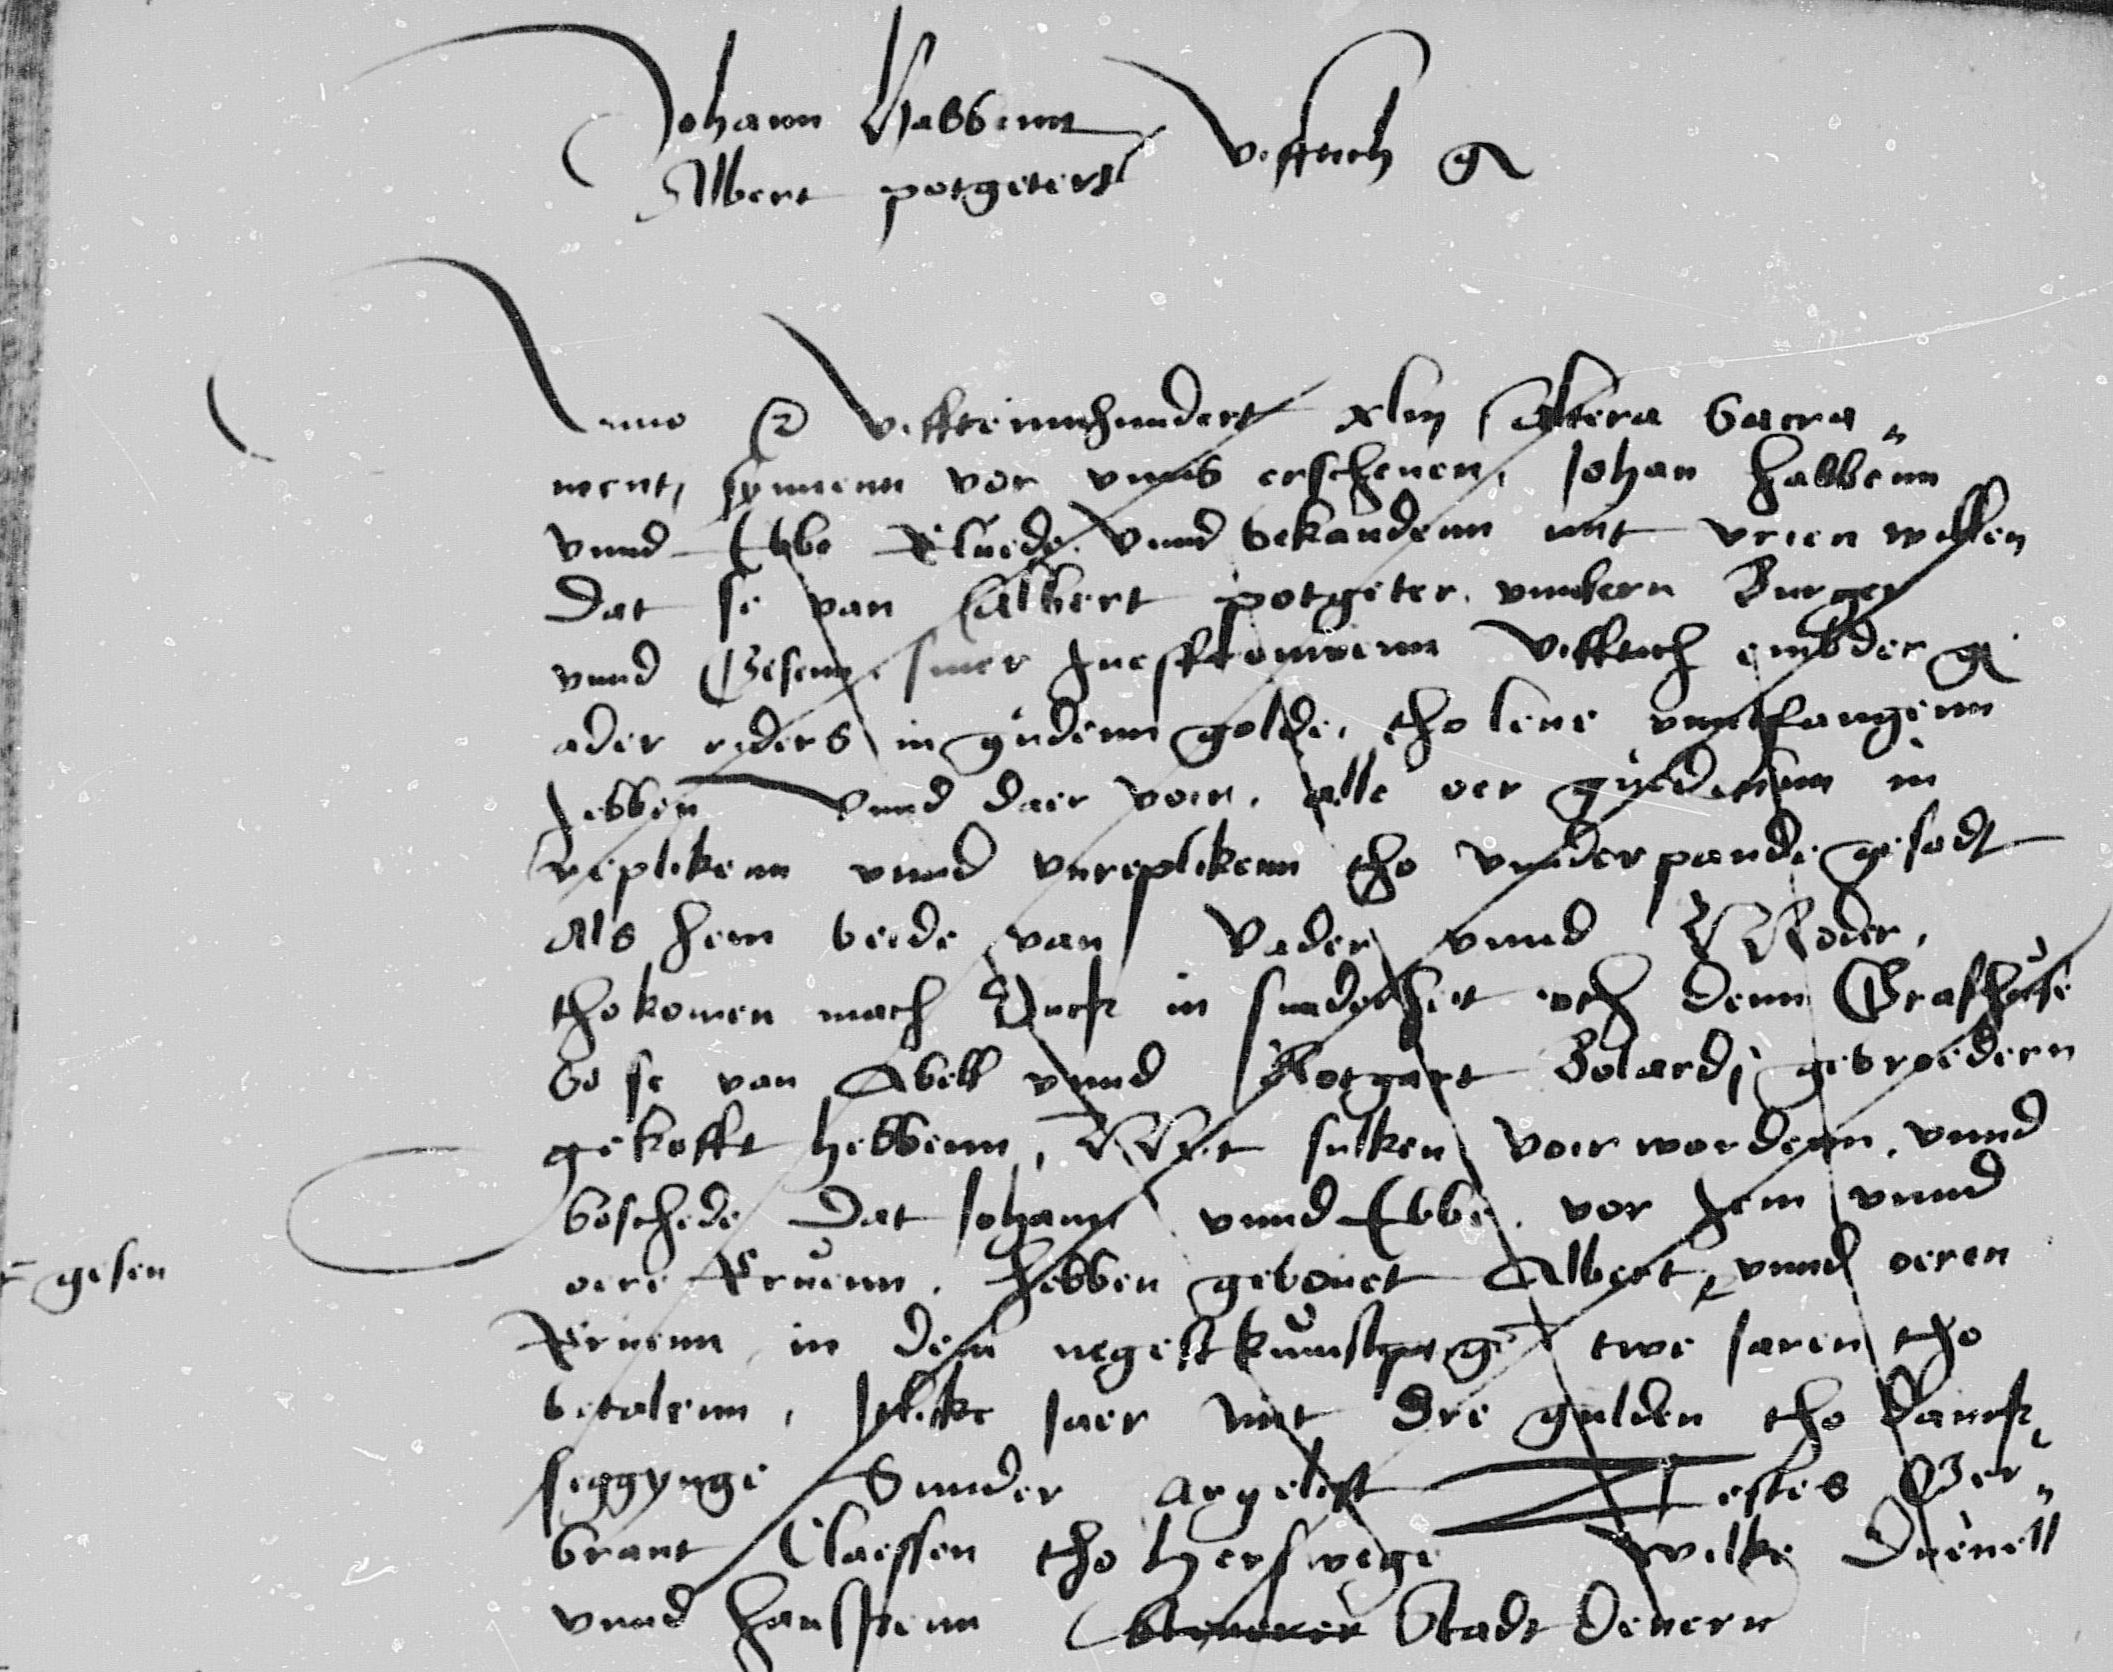 Johann Habbenn
Albert potgeters vefftich g
Anno veffteinnhundert xliij Altera Sacra„
ment, synnenn vor vnns erschenen, Johan Habbenn
vnnd Ebbe vnnd bekandenn mit vrien willen
Dat se van Albert potgeter, vnnsern Burger
vnnd Gesenn siner huesffrouwenn Vefftich embder g
ader riders in gudenn golde, tho lene vnntfangenn
hebben vnnd daer voer, alle oer guederenn in
replikenn vnnd vnreplikenn tho vnnderpande gesedt
Als hem beide van Vader vnnd Moder,
thokomen mach Ock in sunderheit och denn Grashuse
So se van Abell vnnd Rotgart Bolardj gebroedern
gekofft hebbenn, Mit sulken voerworden, vnnd
boschede Dat Johann vnnd Ebbe, vor hem vnnd
oere Eruenn, hebben gelouet Albert, vnnd oeren
⸗ gesen
Eruenn in denn negestkumstigen twe Jaren tho
betalenn, Jslicke Jaer mit dre gulden tho danck„
seggynge Sunder argelist Testes Ger„
brant Claessen tho Herswege Wilke Duenell
vnnd Hanssenn Stadt denern